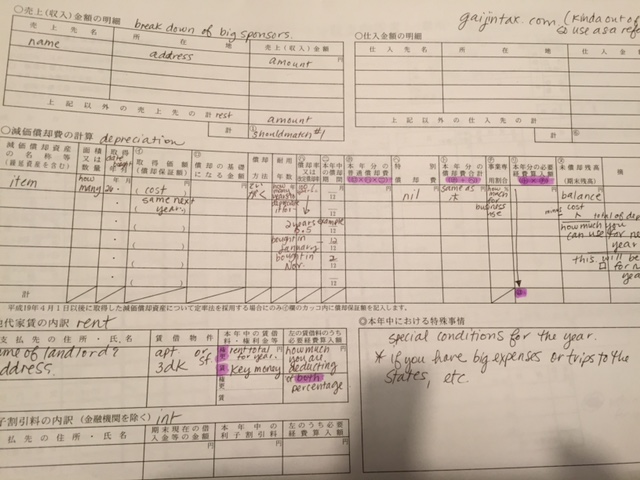 ○売上(収入)金額の明細 break down of big sponsors.
売上先名 所在地 売上(収入)金額
name address amount 円
上記以外の売上先の計 rest amount
計 ① should match #1
gaijintax.com (Kinda out of
so use as a refe
○仕入金額の明細
仕入先名 所在地
上記以外の仕入先の計
計 ⑥
○減価償却費の計算 depreciation
減価償却資産の名称等(繰延資産を含む)
面積又は数量
取得年月
㋑取得価額(償却保証額)
㋺償却の基礎になる金額
償却方法
耐用年数
㋩償却率又は改定償却率
㋥本年中の償却期間
㋭本年分の普通償却費
㋬特別償却費
㋣本年分の償却費合計
㋠事業専用割合
㋷本年分の必要経費算入額
㋦未償却残高(期末残高)
摘
item how many 20. cost nil same as it how much for business use balance
same next year
2 years example
0.5
bought in January 12/12
bought in Nov. 2/12
cost
how much you can use for ne year
this will be for n year
計
平成19年4月1日以後に取得した減価償却資産について定率法を採用する場合にのみ㋑欄のカッコ内に償却保証額を記入します。
地代家賃の内訳 rent
支払先の住所・氏名 賃借物件 本年中の賃借料・権利金等 左の賃借料のうち必要経費算入額
name of landlord?
address.
apt or
3dk
rent total for year.
key money
how much you are deducting
both
percentage
◎本年中における特殊事情
special conditions for the year.
* if you have big expenses or trips to the
States, etc.
子割引料の内訳(金融機関を除く) int
払先の住所・氏名 期末現在の借入金等の金額 本年中の利子割引料 左のうち必要経費算入額